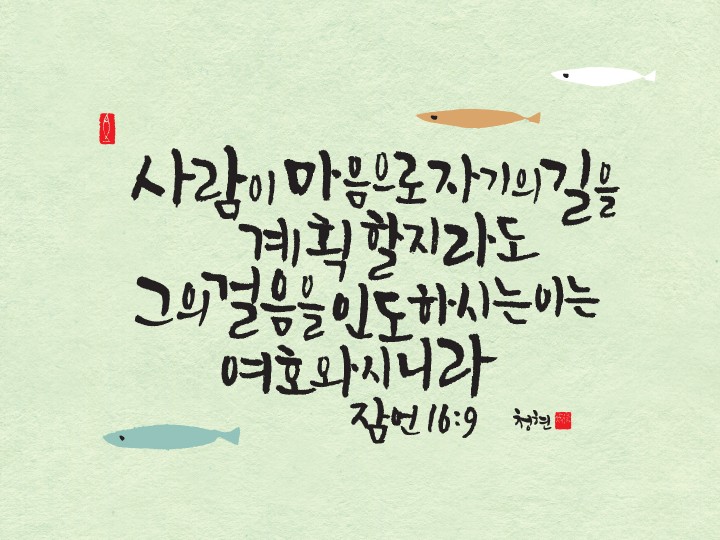 사람이 마음으로 자기의 길을
계획할지라도
그의 걸음을 인도하시는 이는
여호와시니라
잠언 16:9 청현